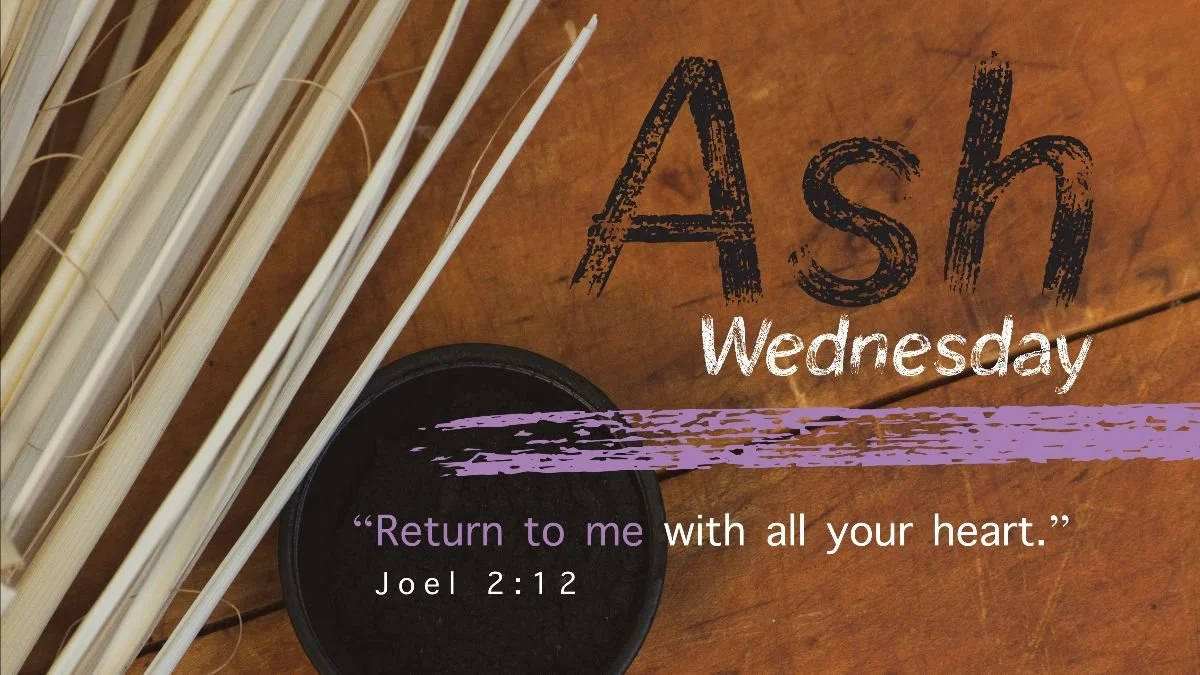 Ash
Wednesday
“Return to me with all your heart.”
Joel 2:12